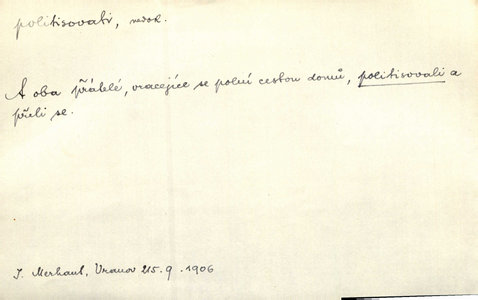 politisovati, nedok.
A oba přátelé, vracejíce se polní cestou domů, politisovali a
přeli se.
J. Merhaut, Vranov 215. 9. 1906